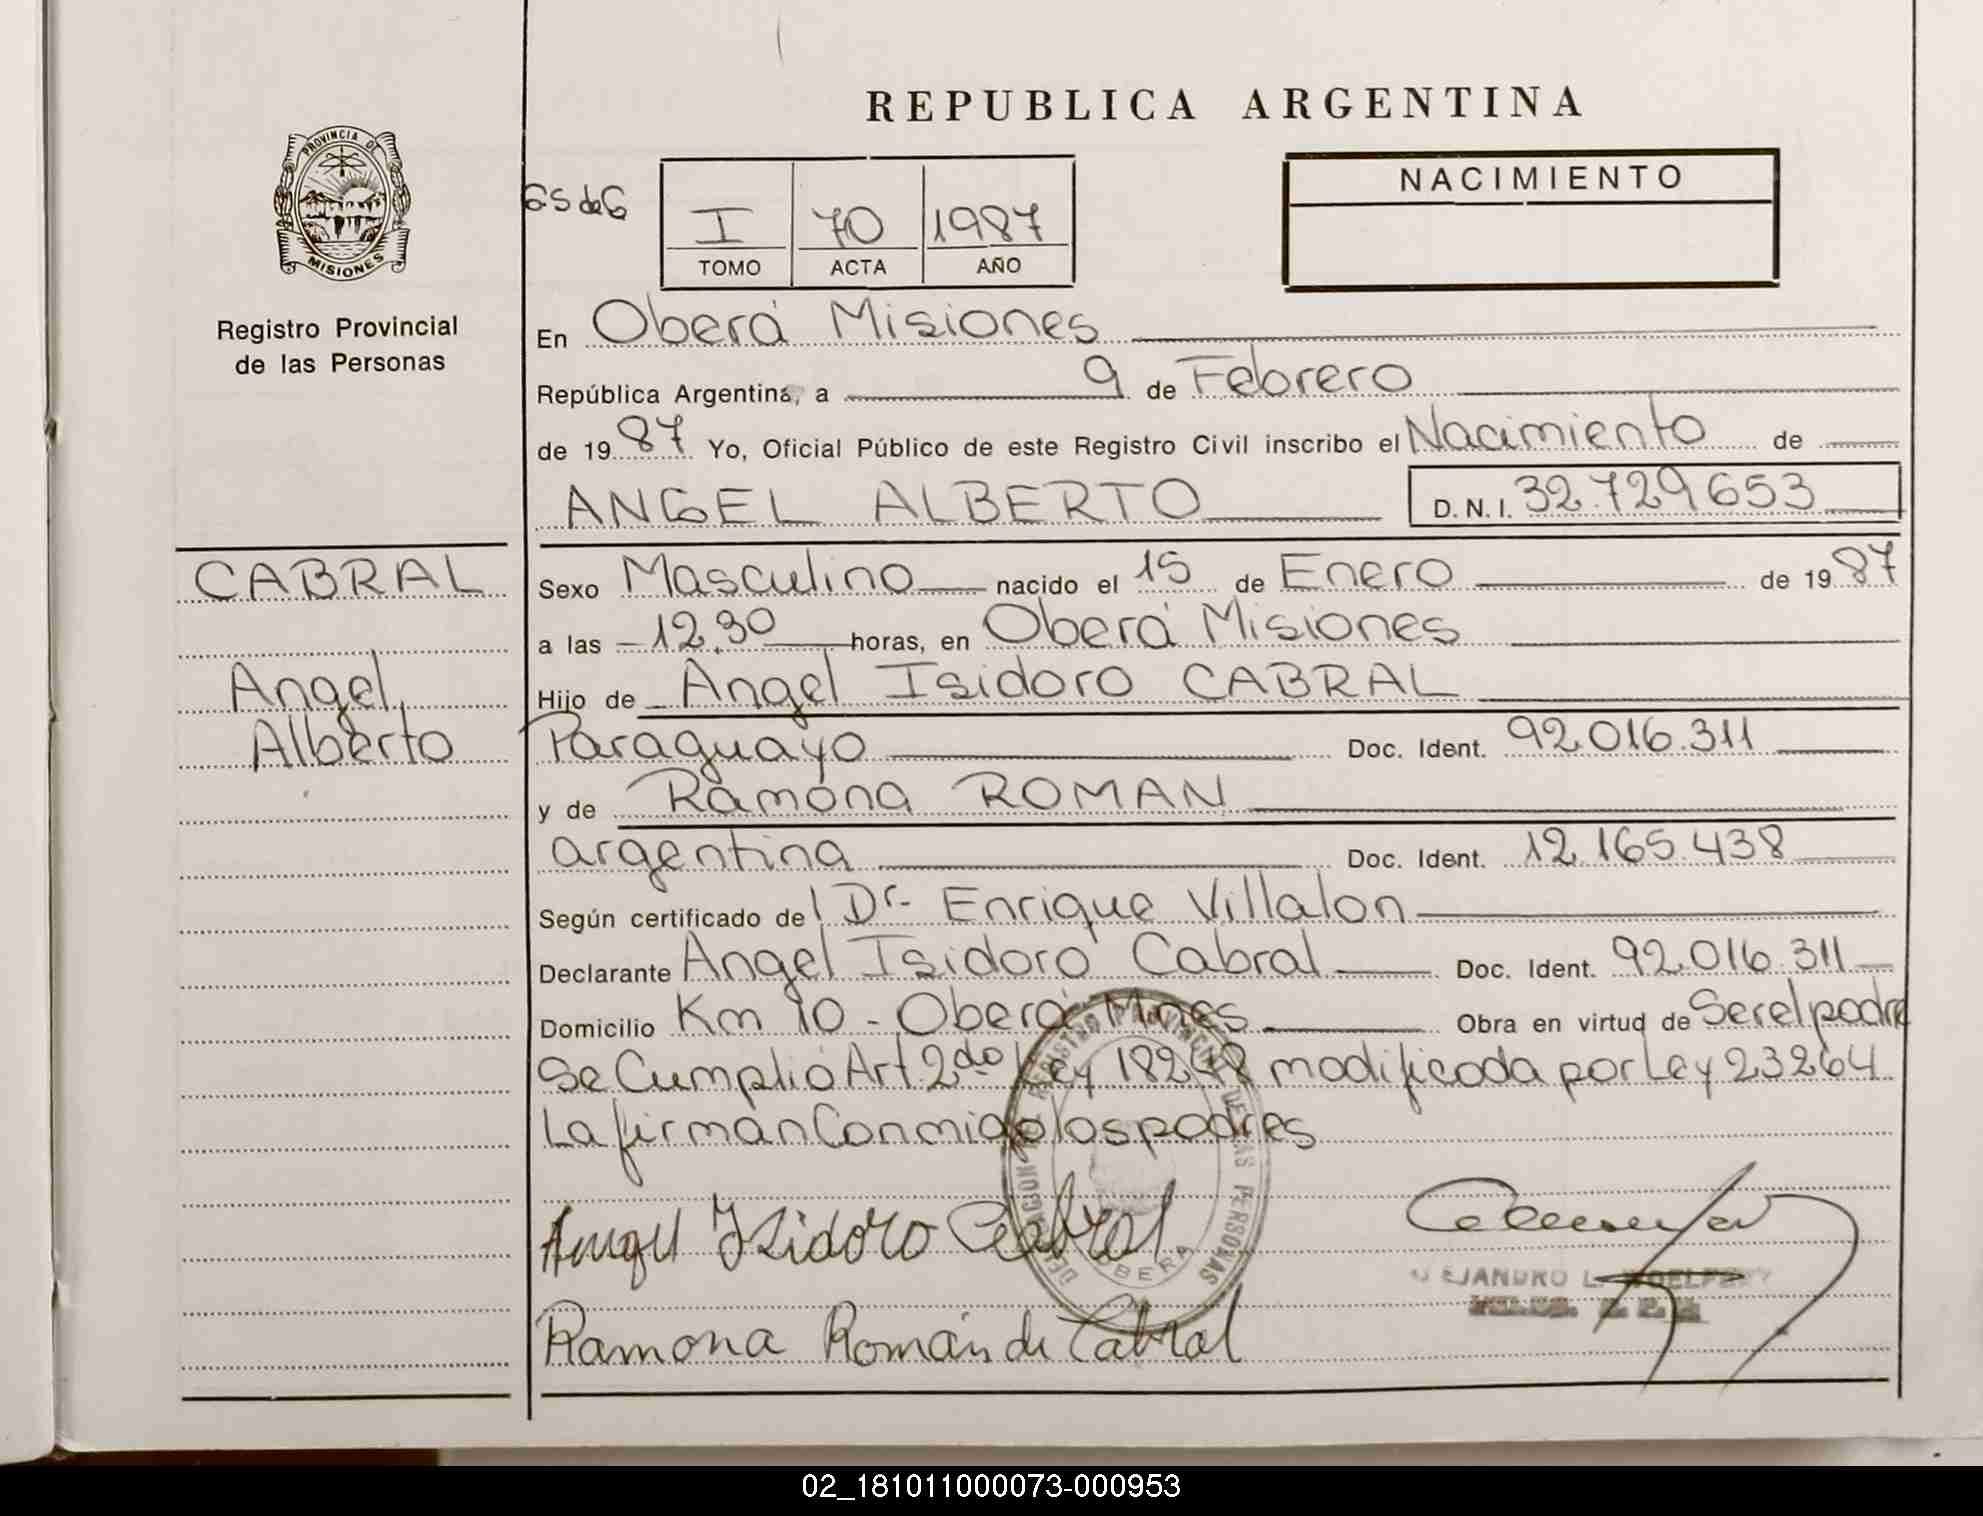 REPUBLICA ARGENTINA
PROVINCIA DE
MISIONES
Registro Provincial
de las Personas
I 70 1987
TOMO ACTA AÑO
NACIMIENTO
En Oberá Misiones
República Argentina, a 9 de Febrero
de 1987 Yo, Oficial Público de este Registro Civil inscribo el Nacimiento de
ANGEL ALBERTO D.N.I. 32.729653
CABRAL
Angel
Alberto
Sexo Masculino nacido el 15 de Enero de 1987
a las 12,30 horas, en Oberá Misiones
Hijo de Angel Isidoro CABRAL
Paraguayo Doc. Ident. 92.016.311
y de Ramona ROMAN
argentina Doc. Ident. 12.165.438
Según certificado del Dr. Enrique Villalon
Declarante Angel Isidoro Cabral Doc. Ident. 92.016.311
Domicilio Km 10 - Oberá Mnes Obra en virtud de Ser el padre
Se Cumplió Art 2do Ley 18248 modificada por Ley 23264
La firman Conmigo los padres
Angel Isidoro Cabral
Ramona Román de Cabral
REGISTRO PROVINCIAL DE LAS PERSONAS
OBERA
02_181011000073-000953